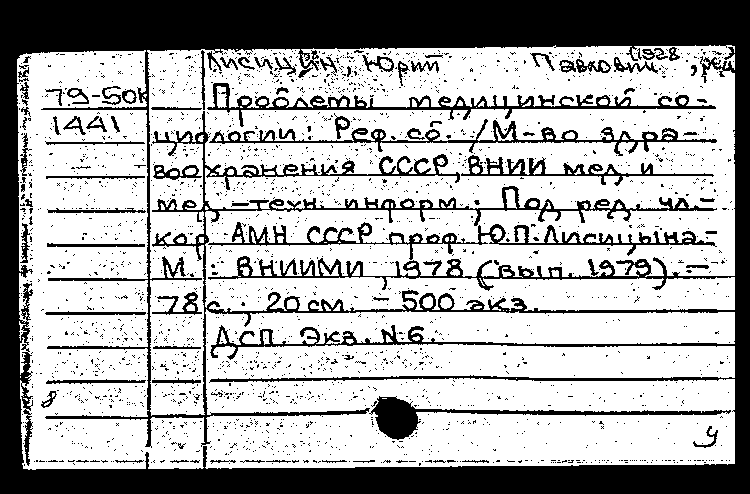 Лисицын, Юрий Павлович (1928, ред
79-50к Проблемы медицинской со-
1441 циологии: Реф. сб. /М-во здра-
воохранения СССР, ВНИИ мед. и
мед.-техн. информ.; Под ред. чл.-
кор АМН СССР проф. Ю.П.Лисицына.-
М.: ВНИИМИ, 1978 (вып. 1979).-
78 с.; 20 см. - 500 экз.
ДСП. Экз. №6.
8
у